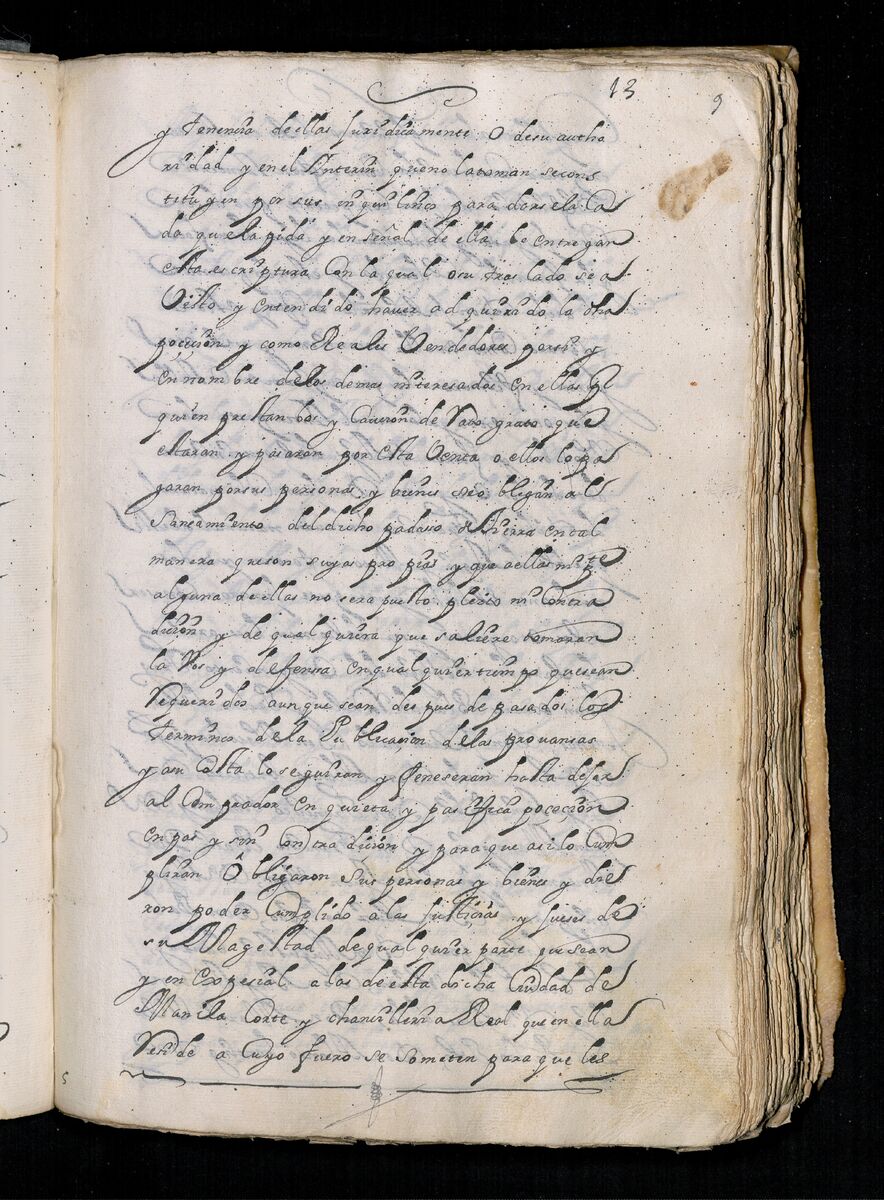 13
9
y tenencia de ellas Juridicamente O desu autho
ridad y en el Ynterin que no la toman se cons
tituyen por sus inquilinos para darsela Ca
da que la pida y en señal de ella le entregan
esta escriptura Con la qual osu traslado se a
Visto y entendido haver adquirido la dha
pocicion y como Reales Vendedores por si y
en nombre delos demas interesados en ellas Pr
quien prestan bos y Caucion de Rato grato que
estaran y pasaran por esta Venta o ellos lo pa
garan por sus personas y bienes se obligan al
saneamiento del dicho padaso de tierra en tal
manera que son suyas propias y que a ellas ni pte
alguna de ellas no sera puesto pleito ni Contra
dicion y de qual quiera que saliere tomaran
la Vos y defensa en qual quier tiempo que sean
Requeridos aunque sean despues de pasados los
terminos de la Publicasion delas provansas
y a su Costa lo seguiran y feneseran hasta dejar
al Comprador en quieta y pasifica pocecion
en pas y sin Contradicion y para que asi lo Cum
pliran Obligaron sus personas y bienes y die
ron poder Cumplido a las Justicias y jueses de
su Magestad de qual quier parte que sean
y en Expesial a las de esta dicha Ciudad de
Manila Corte y chancilleria Real que en ella
Reside a Cuyo fuero se someten para que les
5